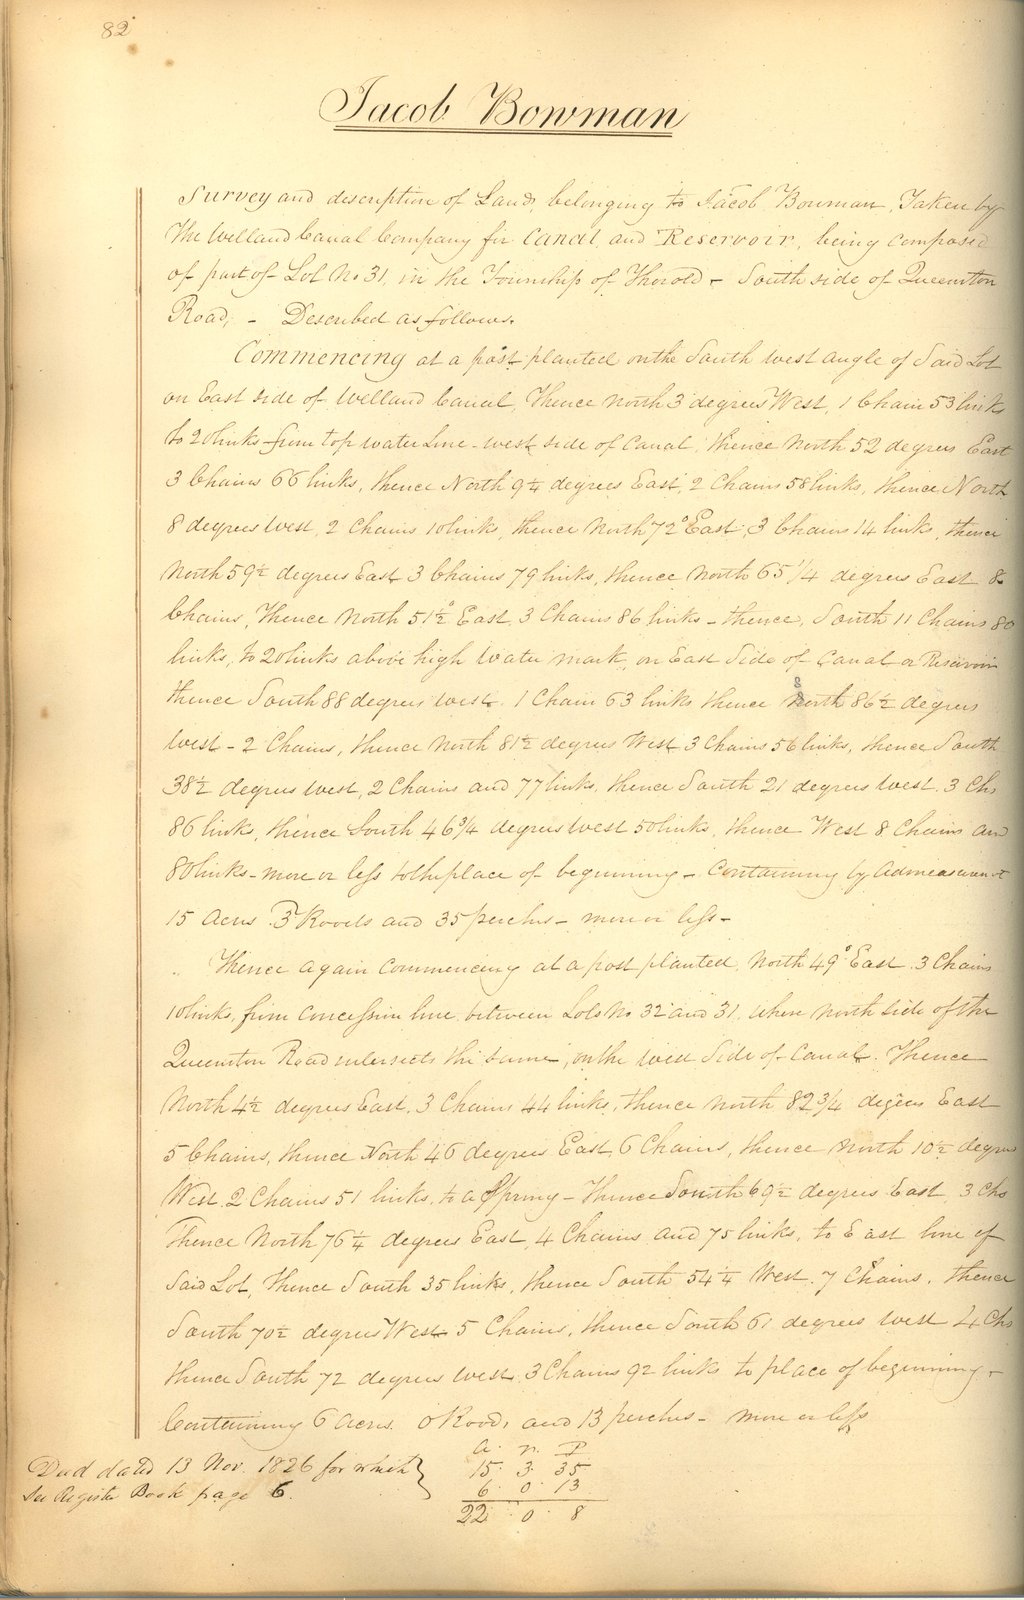 82
Jacob Bowman
Survey and description of Land, belonging to Jacob Bowman, Taken by
The Welland Canal Company for Canal, and Reservoir, being composed
of part of Lot No 31, in the Township of Thorold - South side of Queenston
Road, - Described as follows.
Commencing at a post planted on the South west angle of Said Lot
on East side of Welland Canal, Thence North 3 degrees West, 1 Chain 53 links
to 20 links from top water Line - west side of Canal, thence North 52 degrees East
3 Chains 66 links, thence North 9¼ degrees East, 2 Chains 58 links, thence North
8 degrees West, 2 Chains 10 links, thence North 72° East, 3 Chains 14 links, thence
North 59½ degrees East 3 Chains 79 links, thence North 65 1/4 degrees East 8
Chains, Thence North 51½° East 3 Chains 86 links - thence, South 11 Chains 80
links, to 20 links above high water mark, on East Side of Canal or Reservoir
thence South 88 degrees west. 1 Chain 63 links thence South 86½ degrees
West - 2 Chains, thence North 81½ degrees West 3 Chains 56 links, thence South
38½ degrees west, 2 Chains and 77 links, thence South 21 degrees west. 3 Chs
86 links, thence South 46 3/4 degrees west 50 links, thence West 8 Chains and
80 links - more or less to the place of beginning - Containing by admeasurement
15 Acres 3 Roods and 35 perches - more or less -
Thence again Commencing at a post planted, North 49° East 3 Chains
10 links, from Concession line between Lots No 32 and 31, where north side of the
Queenston Road intersects the same, on the west Side of Canal. Thence
North 4½ degrees East, 3 Chains 44 links, thence North 82 3/4 degrees East
5 Chains, thence North 46 degrees East, 6 Chains, thence North 10½ degrees
West 2 Chains 51 links, to a Spring - Thence South 69½ degrees East, 3 Chs
Thence North 76¼ degrees East, 4 Chains and 75 links, to East line of
Said Lot, thence South 35 links, thence South 54¼ West 7 Chains, thence
South 70½ degrees West 5 Chains, thence South 61 degrees west 4 Chs
thence South 72 degrees west 3 Chains 92 links to place of beginning -
Containing 6 Acres 0 Roods and 13 perches - more or less
Deed dated 13 Nov. 1826 for which
See Register Book page 6.
a. r. P
15. 3. 35
6. 0. 13
22. 0. 8